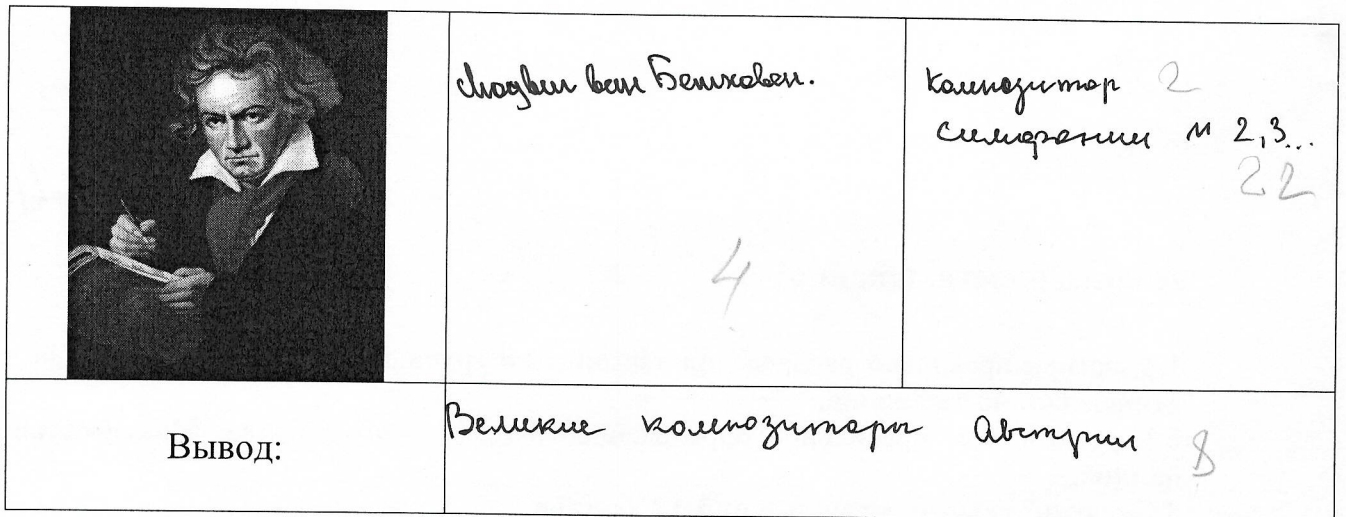 Людвиг ван Бетховен.
4
композитор 2
симфонии № 2,3...
22
Вывод:
Великие композиторы Австрии 8